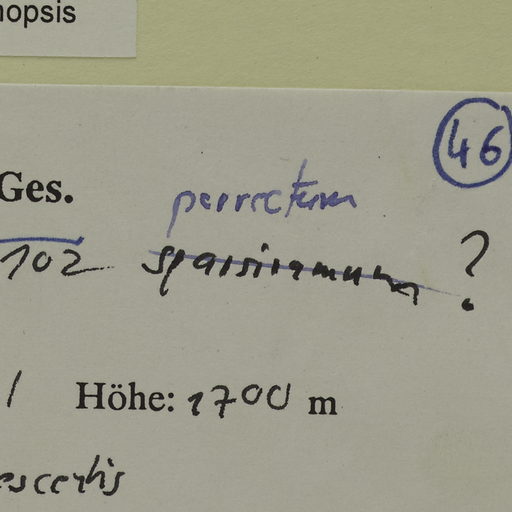 nopsis
46
Ges. porrectum
102 sparsiramum ?
/ Höhe: 1700 m
escentis